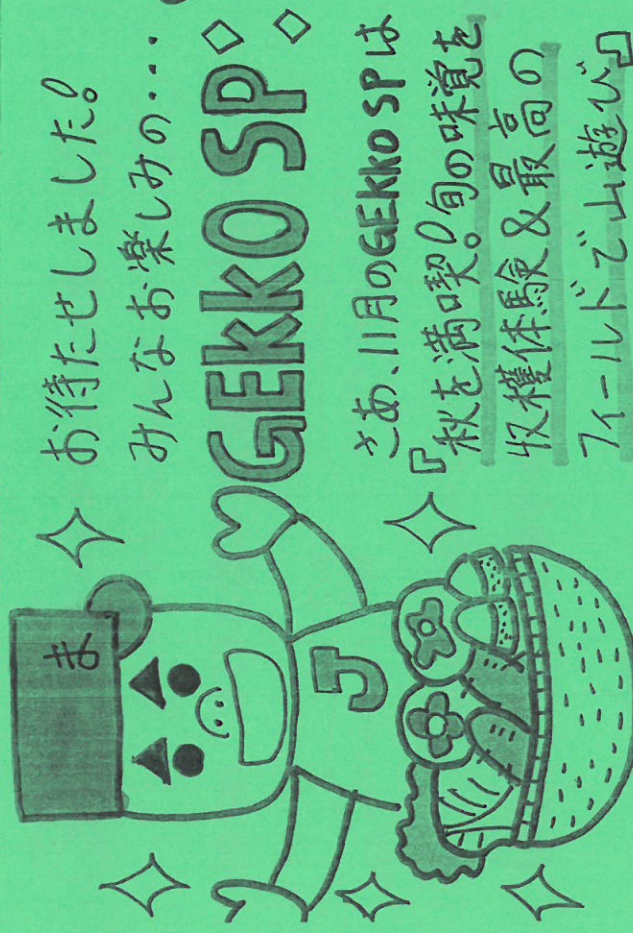 お待たせしました！
みんなお楽しみの・・・
GEKKO SP
さあ、11月のGEKKO SPは
『秋を満喫！旬の味覚を
収穫体験＆最高の
フィールドで山遊び』
ま
J